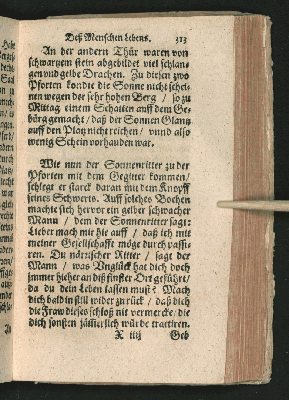 Deß Menschen Lebens. 313
An der andern Thür waren von
schwartzem stein abgebildet viel schlan-
gen und gelbe Drachen. Zu diesen zwo
Pforten kondte die Sonne nicht schei-
nen wegen der sehr hohen Berg / so zu
Mittag einen Schatten auff dem Ge-
bürg gemacht / daß der Sonnen Glantz
auff den Platz nicht reichen / unnd also
wenig Schein vorhanden war.
Wie nun der Sonnenritter zu der
Pforten mit dem Gegitter kommen /
schlegt er starck daran mit dem Knopff
seines Schwerts. Auff solches Bochen
machte sich hervor ein gelber schwacher
Mann / dem der Sonnenritter sagt:
Lieber mach mir hie auff / daß ich mit
meiner Gesellschafft möge durch passie-
ren. Du närrischer Ritter / sagt der
Mann / was Unglück hat dich doch
immer hieher an diß finster Ort geführt /
da du dein Leben lassen must? Mach
dich bald in still wider zu rück / daß dich
die Fraw dieses schloß nit vermercke / die
dich sonsten jämerlich würde tractiren.
X iiij Geh